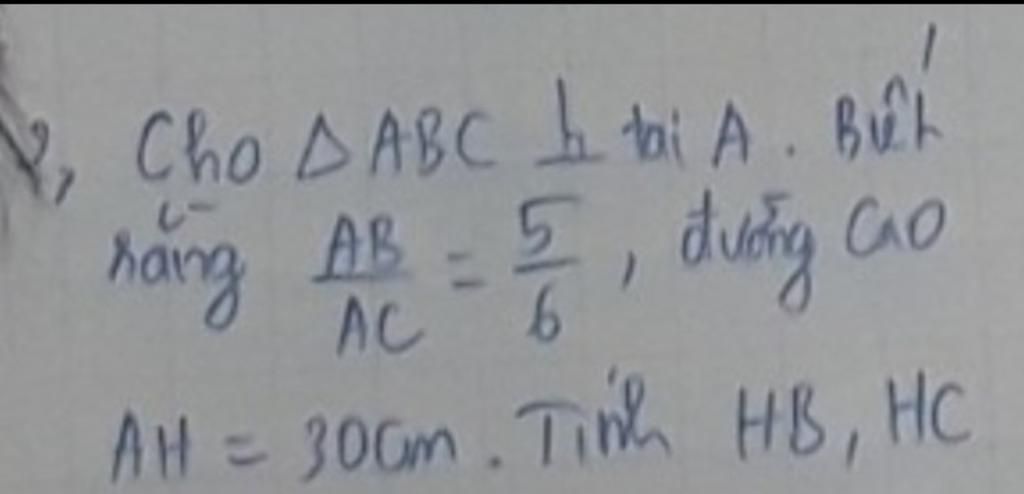 2, Cho △ABC ⊥ tại A. Biết
rằng AB/AC = 5/6, đường cao
AH = 30cm. Tính HB, HC